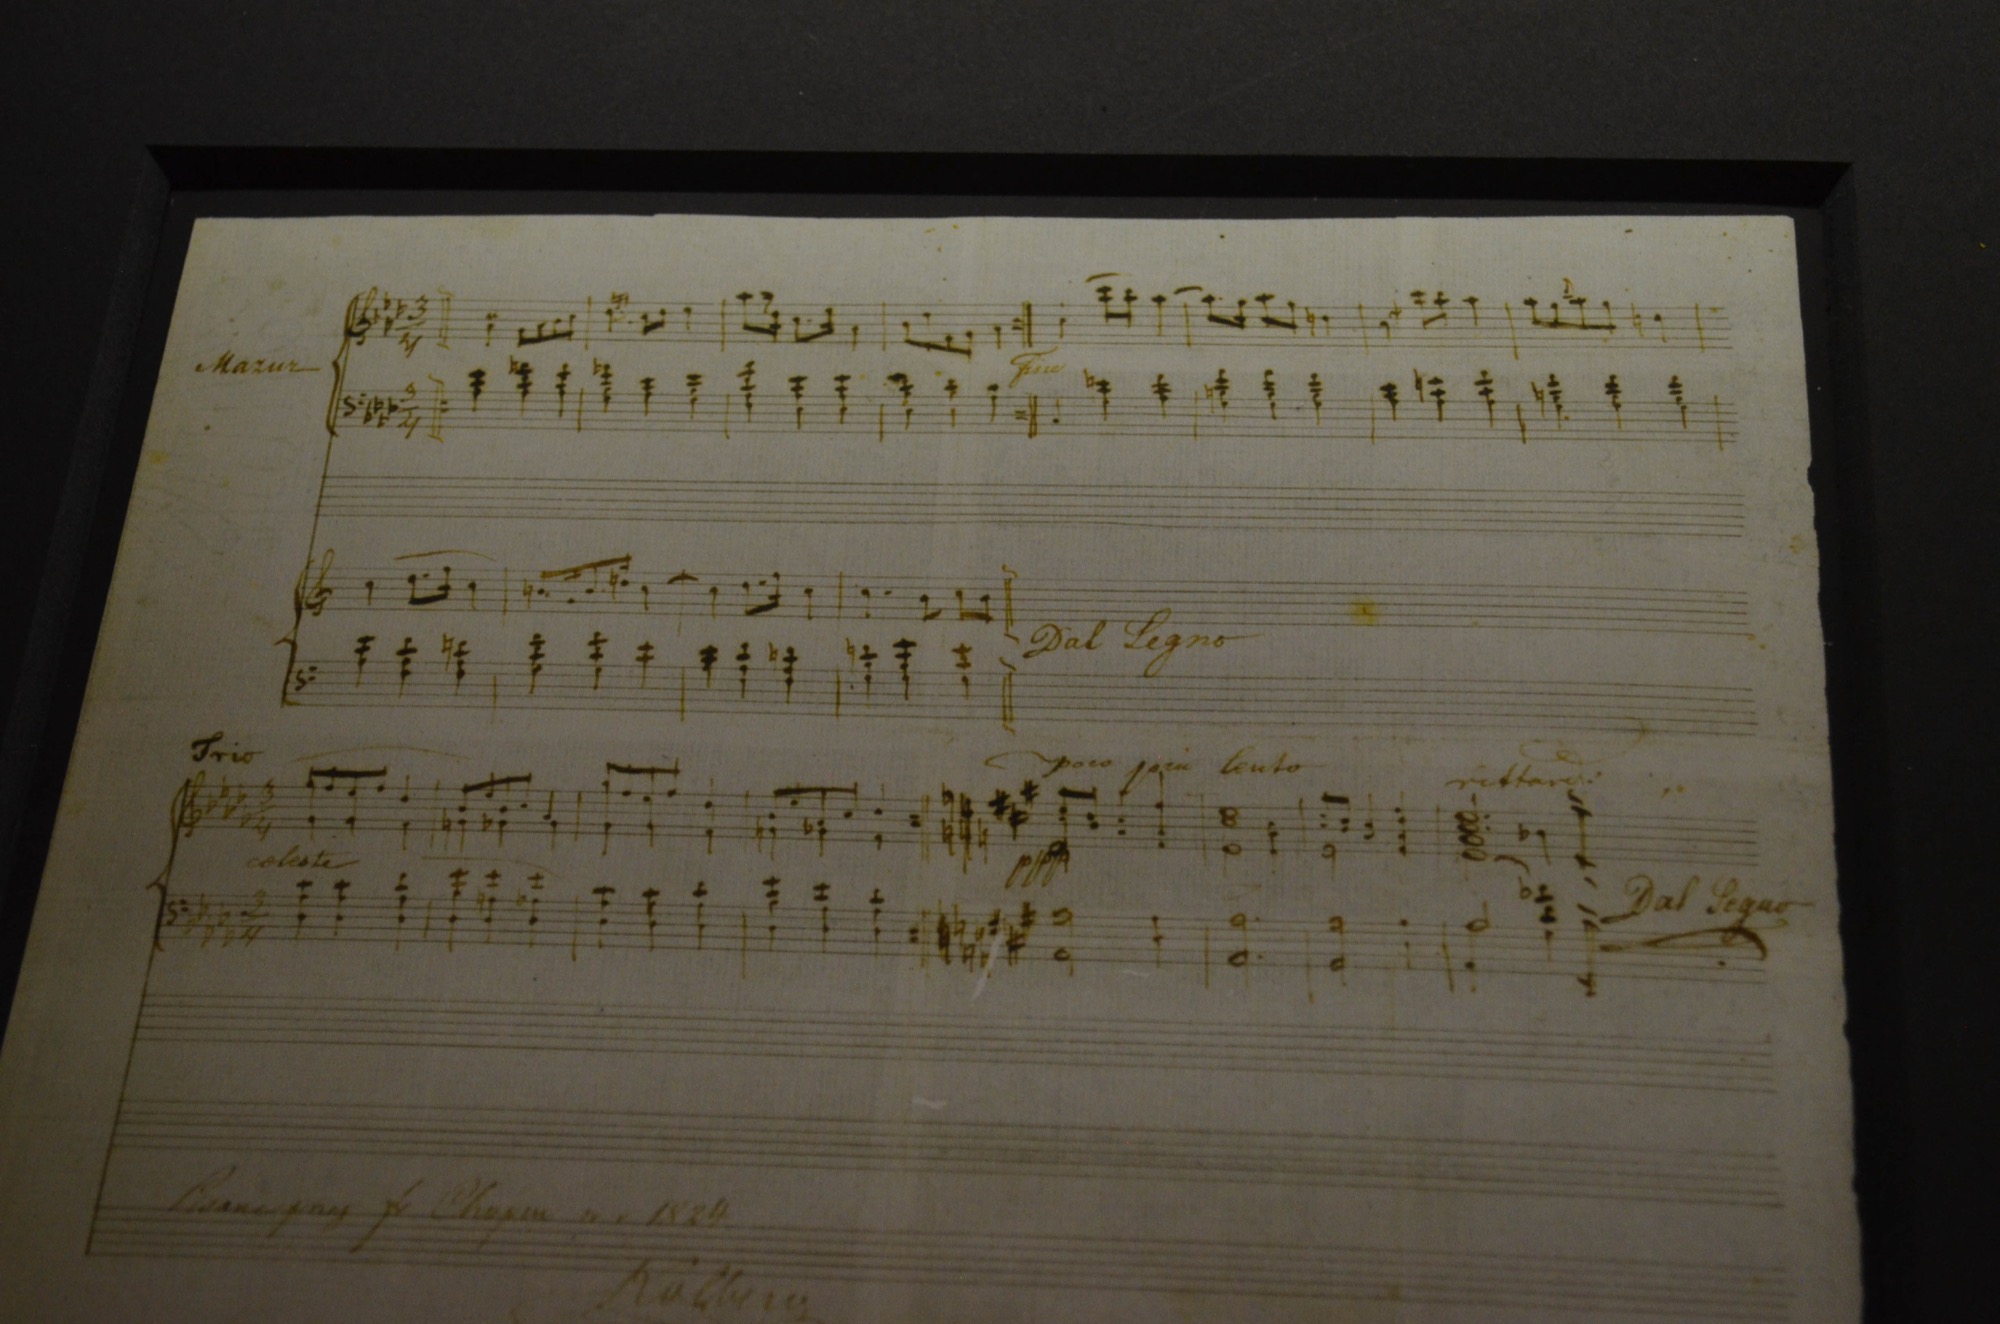 Mazur
3/4
3/4
Fine
Dal Segno
Trio
poco piu lento
rittard:
3/4
celeste
pppp
3/4
Dal Segno
Pisane przez fr Chopin w r 1824
Kolberg